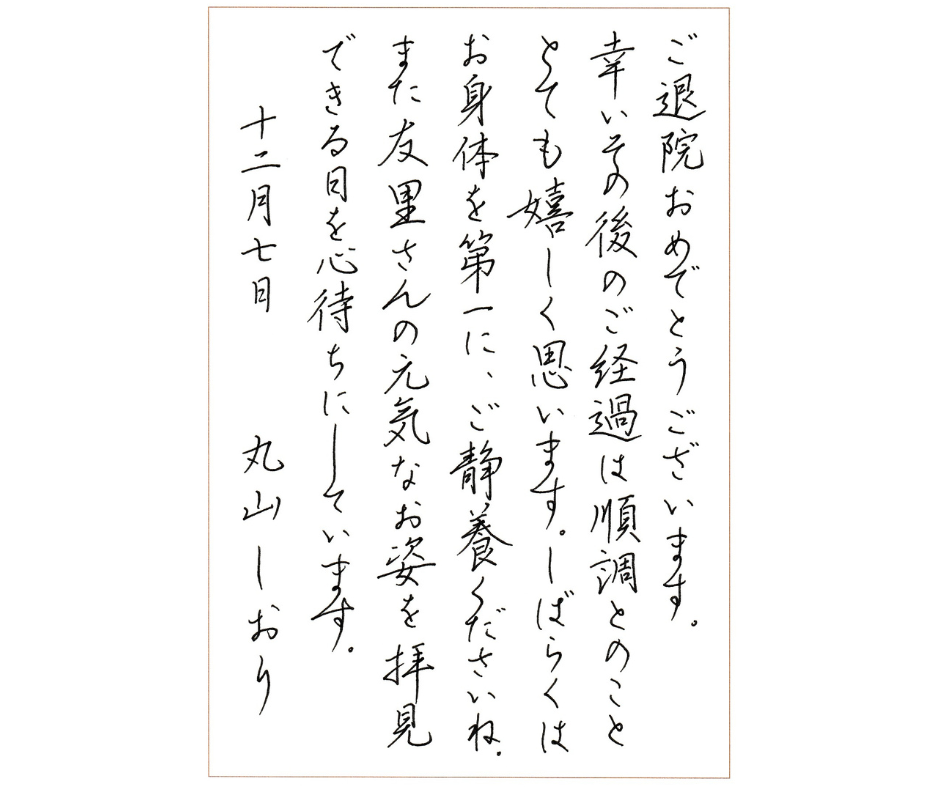 ご退院おめでとうございます。
幸いその後のご経過は順調とのこと
とても嬉しく思います。しばらくは
お身体を第一に、ご静養くださいね。
また友里さんの元気なお姿を拝見
できる日を心待ちにしています。
十二月七日 丸山しおり